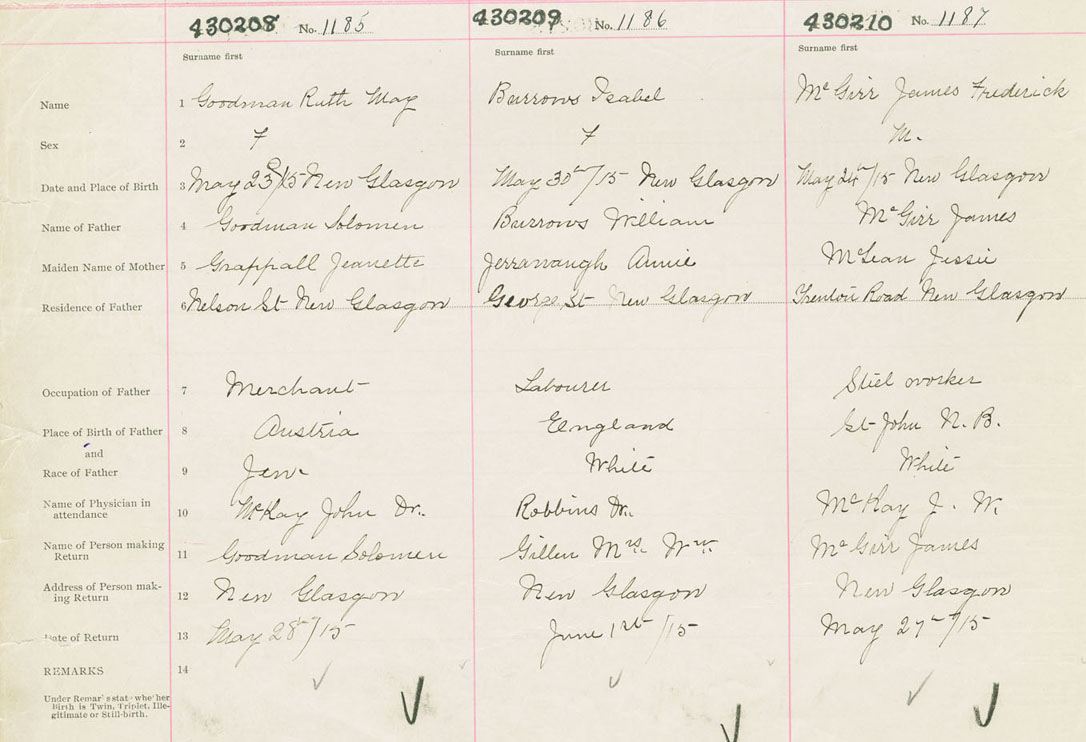 430208 No. 1185 430209 No. 1186 430210 No. 1187
Surname first Surname first Surname first
Name 1 Goodman Ruth May Burrows Isabel McGirr James Frederick
Sex 2 F F M.
Date and Place of Birth 3 May 23rd/15 New Glasgow May 30th/15 New Glasgow May 24th/15 New Glasgow
Name of Father 4 Goodman Solomen Burrows William McGirr James
Maiden Name of Mother 5 Grappall Jeanette Jerravaugh Annie McLean Jessie
Residence of Father 6 Nelson St New Glasgow George St New Glasgow Trenton Road New Glasgow
Occupation of Father 7 Merchant Labourer Steel worker
Place of Birth of Father 8 Austria England St John N.B.
and
Race of Father 9 Jew White White
Name of Physician in
attendance 10 McKay John Dr. Robbins Dr. McKay J. W.
Name of Person making
Return 11 Goodman Solomen Gillen Mrs. Wm. McGirr James
Address of Person mak-
ing Return 12 New Glasgow New Glasgow New Glasgow
Date of Return 13 May 28th/15 June 1st/15 May 27th/15
REMARKS 14
Under Remarks state whether
Birth is Twin, Triplet, Ille-
gitimate or Still-birth.